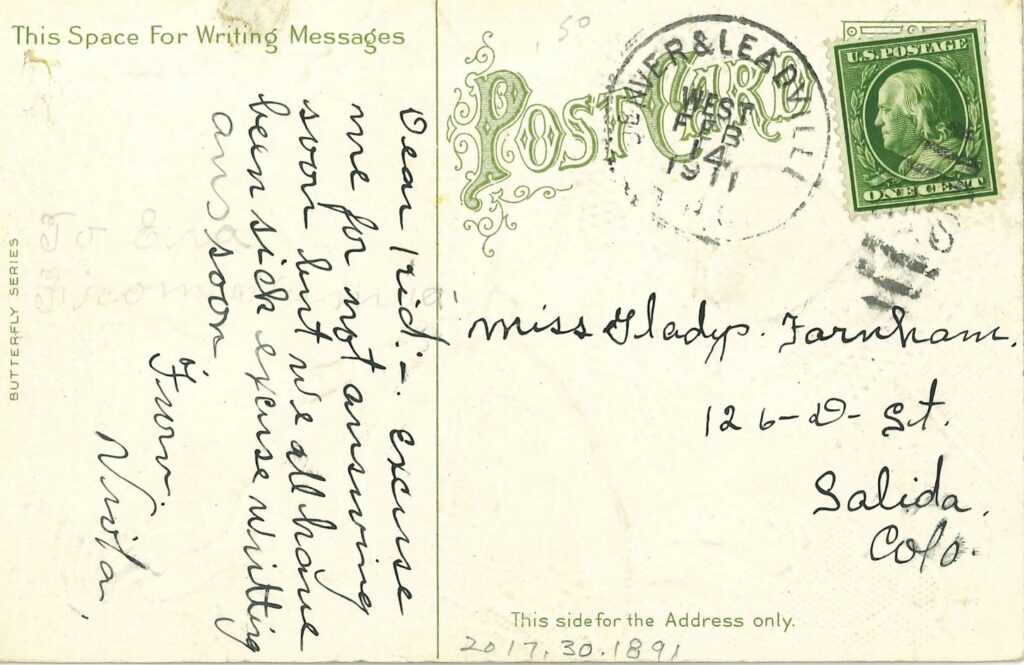 This Space For Writing Messages
BUTTERFLY SERIES
Dear Kid:- excuse
me for not answing
soon but we all have
been sick excuse writting
ans soon
From.
Viola.
To
From
POST CARD
DENVER & LEADVILLE
WEST
FEB
14
1911
U.S. POSTAGE
ONE CENT
50
Miss Gladys. Farnham.
126-D-St.
Salida.
Colo.
This side for the Address only.
2017.30.1891